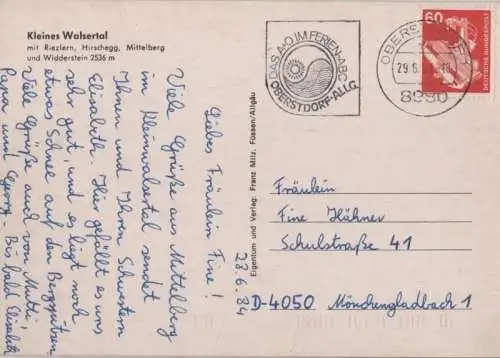 Kleines Walsertal
mit Riezlern, Hirschegg, Mittelberg
und Widderstein 2536 m
DAS A+O IM FERIEN-ABC
OBERSTDORF-ALLG.
29.6.
8980
60
DEUTSCHE BUNDESPOST
28.6.84
Liebes Fräulein Fine!
Viele Grüße aus Mittelberg
im Kleinwalsertal sendet
Ihnen und Ihren Schwestern
Elisabeth. Hier gefällt es uns
sehr gut, und es liegt noch
etwas Schnee auf den Bergspitzen.
Viele Grüße auch von Mutti,
Papa und Georg. Bis bald Elisabeth
Eigentum und Verlag: Franz Milz, Füssen/Allgäu
Fräulein
Fine Hühner
Schulstraße 41
D-4050 Mönchengladbach 1